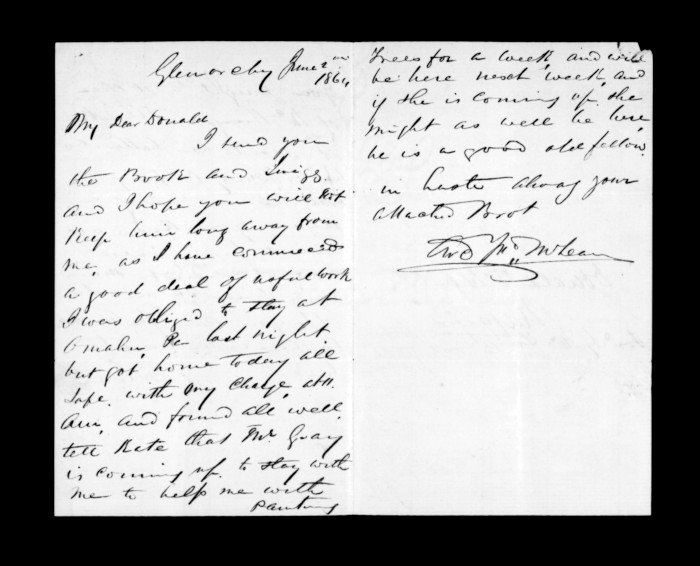 Glenorchy June 2nd
1864
My Dear Donald
I send you
the Book and
and I hope you will not
keep him long away from
me, as I have commenced
a good deal of useful work
I was obliged to stay at
Omahu Pa last night.
but got home today all
safe. with my charge, at 11.
Am, and found all well.
tell Kate that Mr Gray
is coming up. to stay with
me to help me with
Planting
Trees for a week and will
be here next week, and
if she is coming up, she
might as well be here,
he is a good old fellow.
in haste always your
attached Brot
McLean